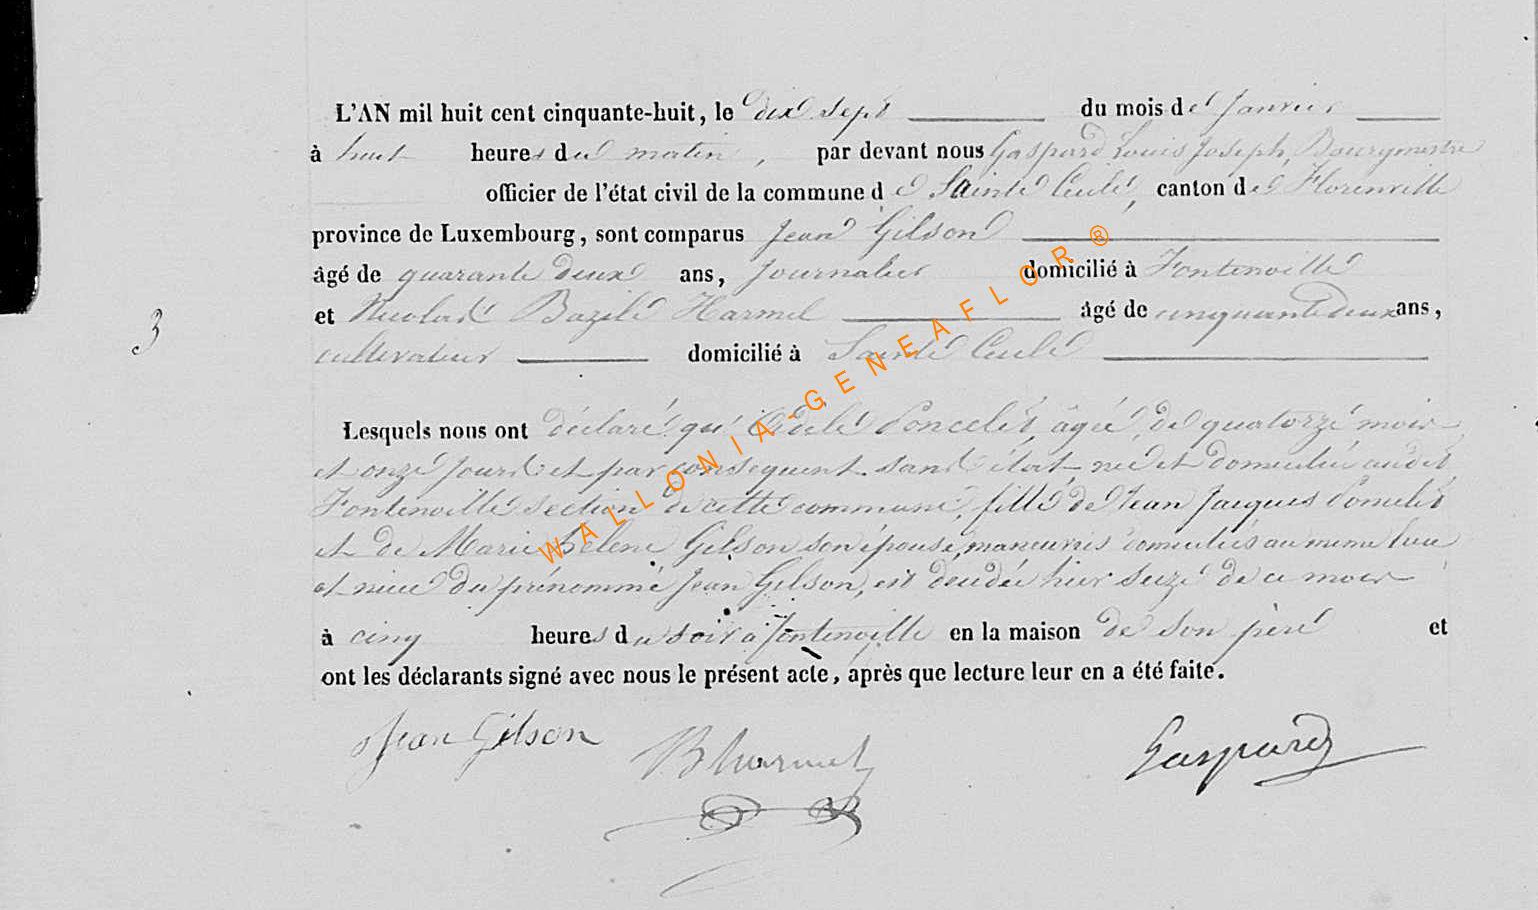 L'AN mil huit cent cinquante-huit, le dix sept du mois de Janvier
à huit heures du matin, par devant nous Gaspard Louis Joseph, Bourgmestre
officier de l'état civil de la commune de Sainte Cecile, canton de Florenville
province de Luxembourg, sont comparus Jean Gilson
âgé de quarante deux ans, Journalier domicilié à Fontenoille
et Nicolas Bazile Harmel âgé de cinquante deux ans,
3
cultivateur domicilié à Sainte Cecile
Lesquels nous ont déclaré que Adele Poncelet, âgée, de quatorze mois
et onze jours et par conséquent sans état née et domiciliée audit
Fontenoille section de cette commune, fille de Jean Jacques Poncelet
et de Marie Helene Gilson son épouse, maneuvres domiciliés au meme lieu
et niece du prénommé Jean Gilson, est décédée hier seize de ce mois
à cinq heures du soir à Fontenoille en la maison de son père et
ont les déclarants signé avec nous le présent acte, après que lecture leur en a été faite.
Jean Gilson
BHarmel
Gaspard
WALLONIA-GENEAFLOR®